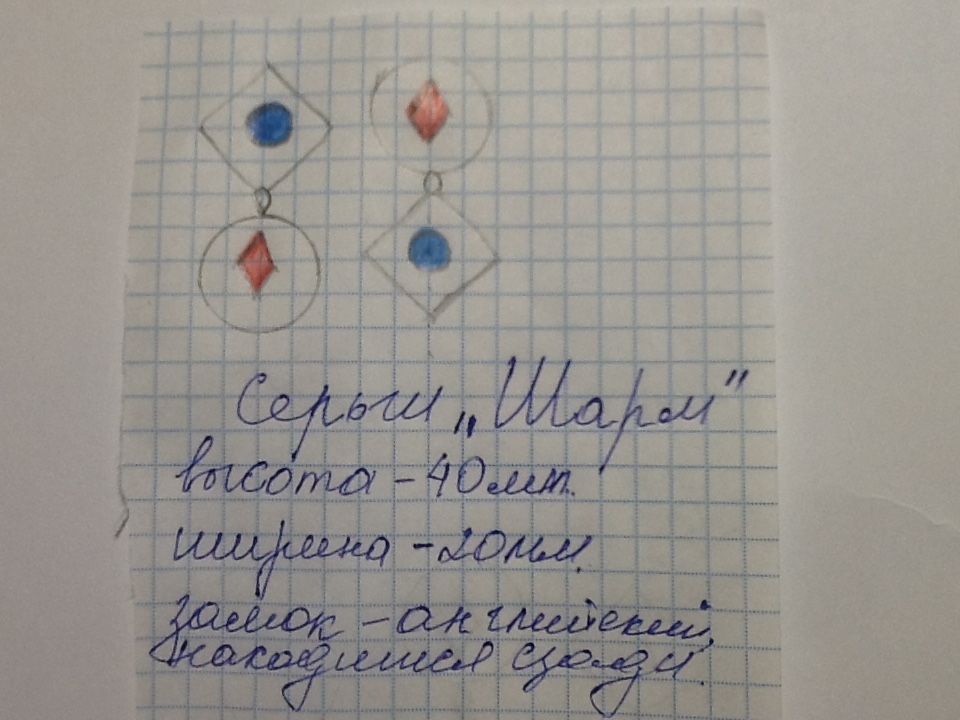 Серьги „Шарм"
высота - 40мм.
ширина - 20мм.
замок - английский,
находится сзади.